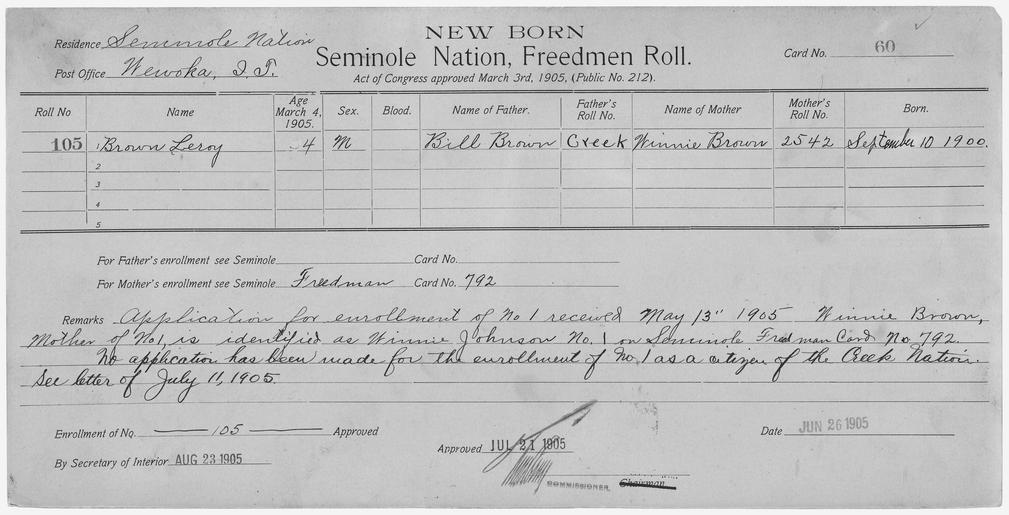 NEW BORN
Residence Seminole Nation
Seminole Nation, Freedmen Roll.
Card No. 60
Post Office Wewoka, I.T.
Act of Congress approved March 3rd, 1905, (Public No. 212).
Roll No Name Age March 4, 1905. Sex. Blood. Name of Father. Father's Roll No. Name of Mother Mother's Roll No. Born.
105 1 Brown Leroy 4 M Bill Brown Creek Winnie Brown 2542 September 10 1900.
2
3
4
5
For Father's enrollment see Seminole Card No.
For Mother's enrollment see Seminole Freedman Card No. 792
Remarks Application for enrollment of No 1 received May 13" 1905 Winnie Brown,
Mother of No1, is identified as Winnie Johnson No. 1 on Seminole Freedman Card No 792.
No application has been made for the enrollment of No. 1 as a citizen of the Creek Nation.
See letter of July 11, 1905.
Enrollment of No. 105 Approved
Date JUN 26 1905
Approved JUL 21 1905
By Secretary of Interior AUG 23 1905
COMMISSIONER. Chairman.